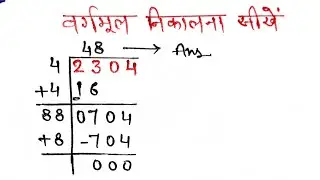 वर्गमूल निकालना सीखें
48 → Ans
4 2304
+4 16
88 0704
+8 -704
000